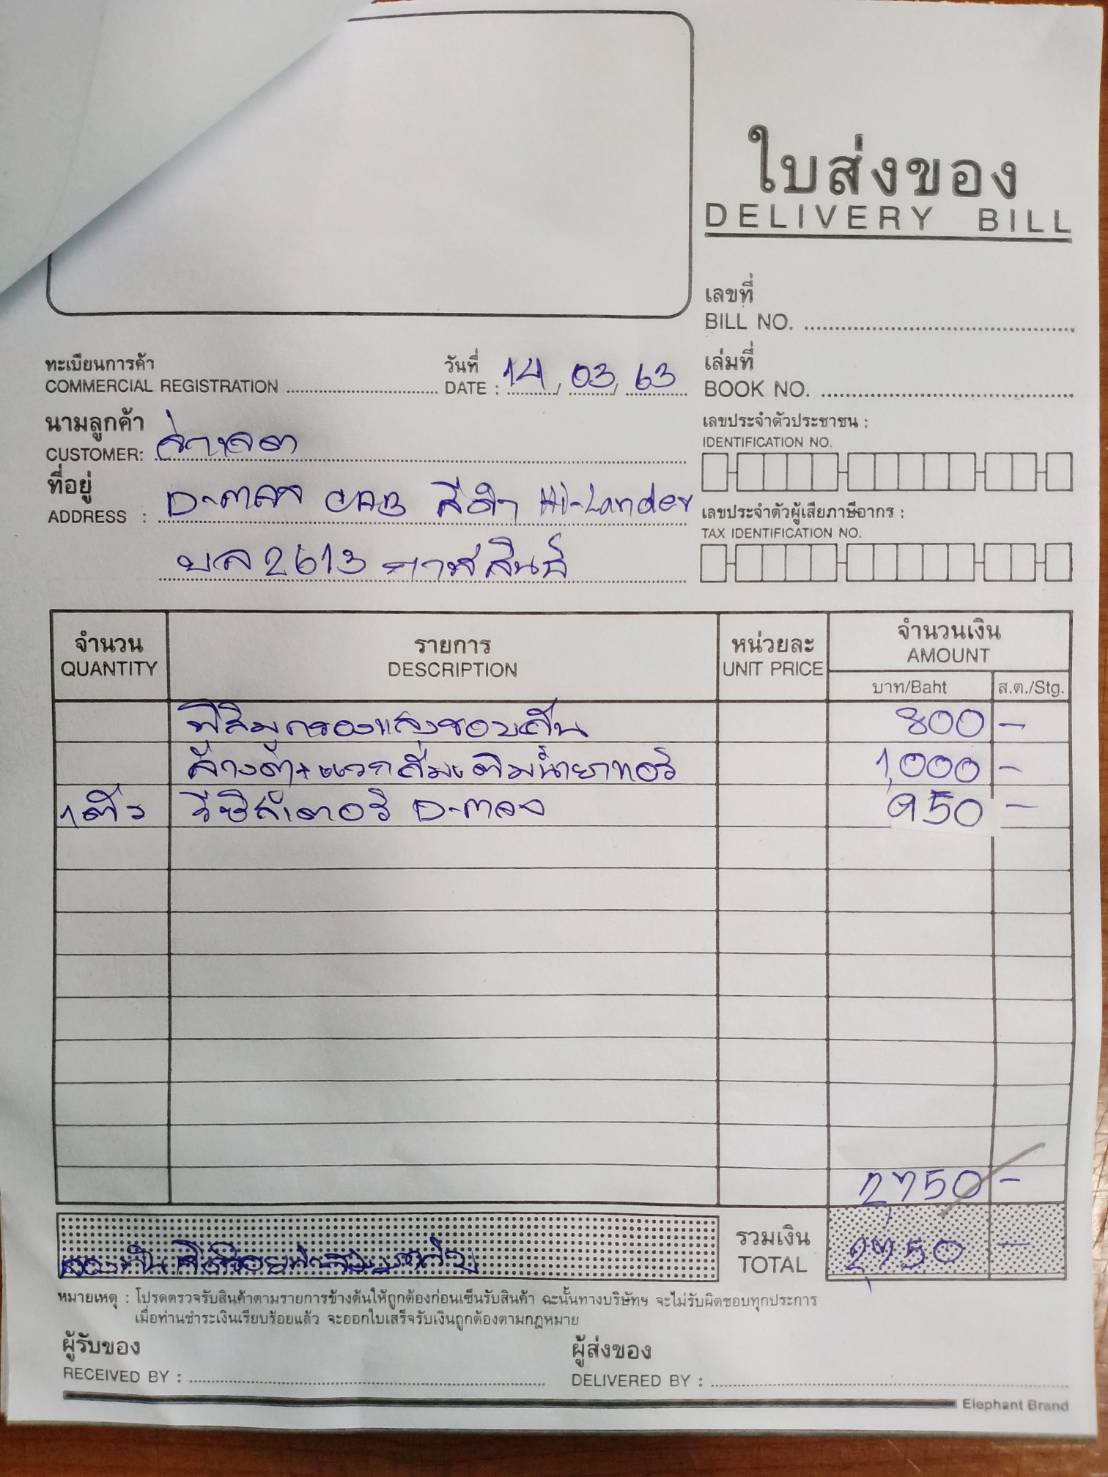 ใบส่งของ
DELIVERY BILL
เลขที่
BILL NO.
ทะเบียนการค้า
COMMERCIAL REGISTRATION
วันที่
DATE : 14, 03, 63
เล่มที่
BOOK NO.
นามลูกค้า
CUSTOMER:
เลขประจำตัวประชาชน :
IDENTIFICATION NO.
ที่อยู่
ADDRESS : D-max CAB สีดำ Hi-Lander
2613 กาฬสินธุ์
เลขประจำตัวผู้เสียภาษีอากร :
TAX IDENTIFICATION NO.
จำนวน รายการ หน่วยละ จำนวนเงิน
QUANTITY DESCRIPTION UNIT PRICE AMOUNT
บาท/Baht ส.ต./Stg.
ฟิล์มกรองแสงรอบคัน 800 -
ล้างตู้ เติมน้ำยาแอร์ 1,000 -
1 ตัว รีซิสเตอร์ D-max 950 -
2,750 -
รวมเงิน
TOTAL 2,750 -
หมายเหตุ : โปรดตรวจรับสินค้าตามรายการข้างต้นให้ถูกต้องก่อนเซ็นรับสินค้า ฉะนั้นทางบริษัทฯ จะไม่รับผิดชอบทุกประการ
เมื่อท่านชำระเงินเรียบร้อยแล้ว จะออกใบเสร็จรับเงินถูกต้องตามกฎหมาย
ผู้รับของ
RECEIVED BY :
ผู้ส่งของ
DELIVERED BY :
Elephant Brand